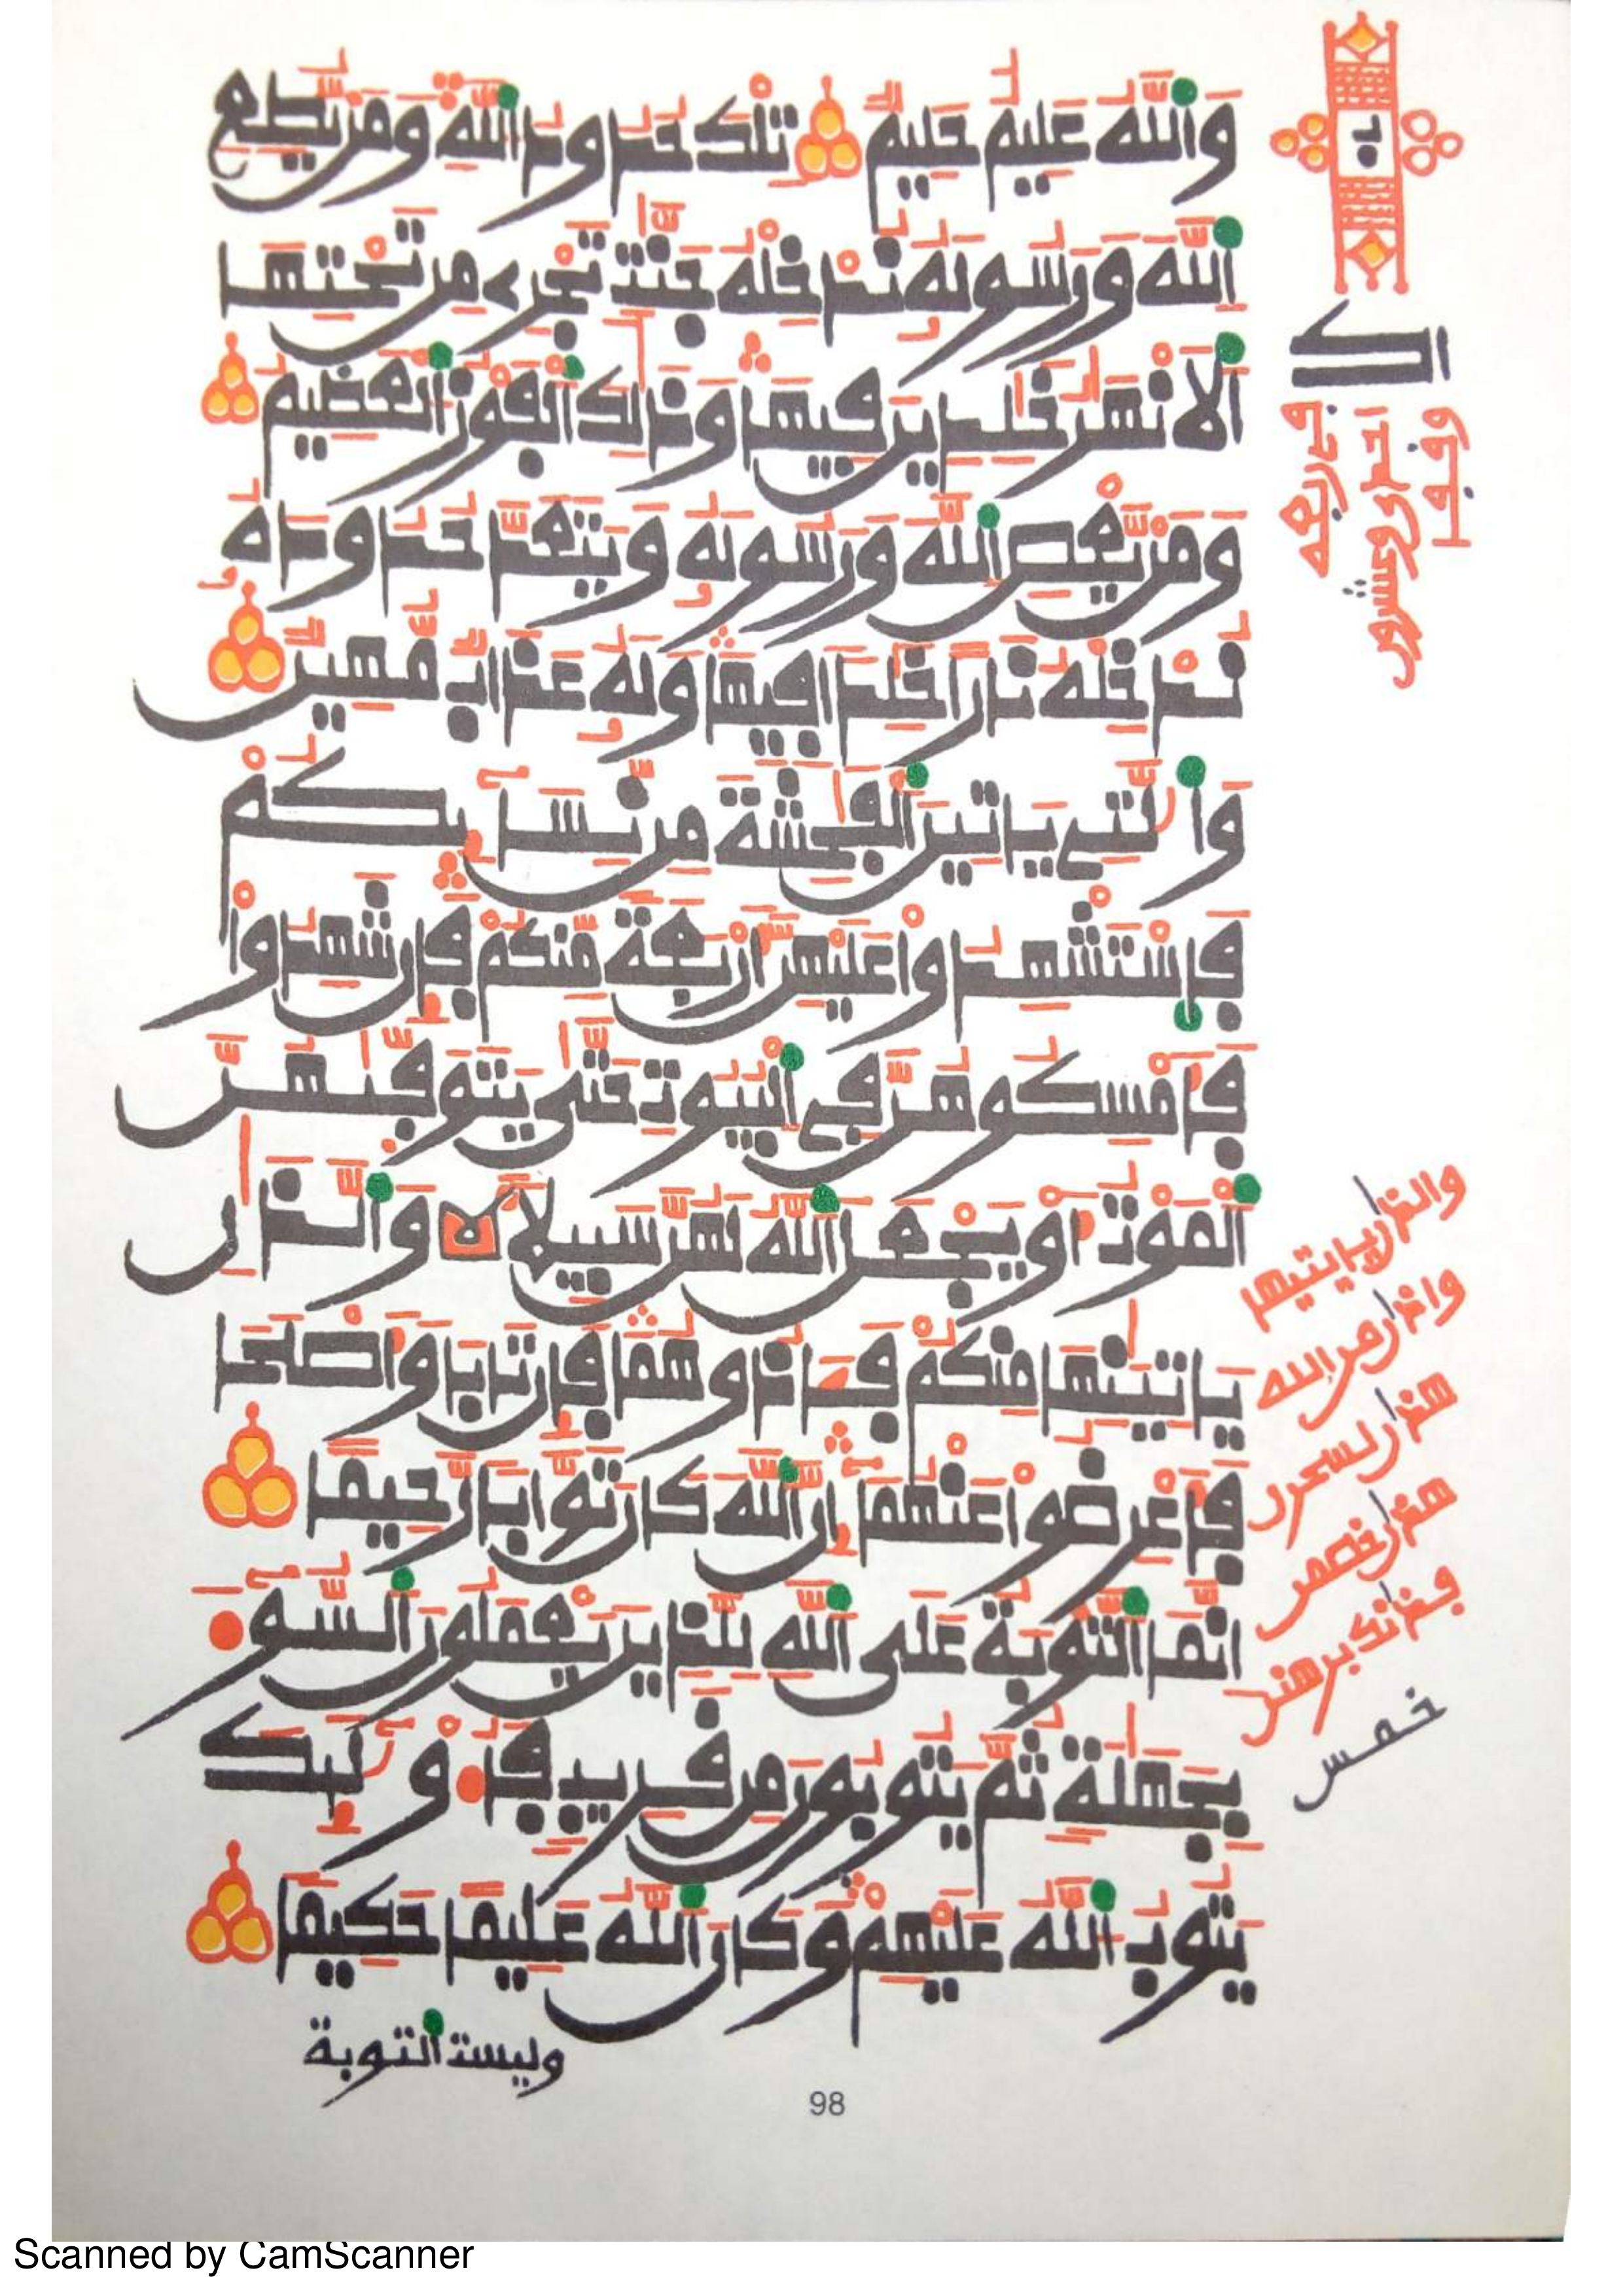 وَاللَّهُ عَلِيمٌ حَلِيمٌ تِلْكَ حُدُودُ اللَّهِ وَمَنْ يُطِعِ
اللَّهَ وَرَسُولَهُ نُدْخِلْهُ جَنَّٰتٍ تَجْرِي مِن تَحْتِهَا
الْأَنْهَٰرُ خَٰلِدِينَ فِيهَا وَذَٰلِكَ الْفَوْزُ الْعَظِيمُ
وَمَنْ يَعْصِ اللَّهَ وَرَسُولَهُ وَيَتَعَدَّ حُدُودَهُ
نُدْخِلْهُ نَارًا خَٰلِدًا فِيهَا وَلَهُ عَذَابٌ مُّهِينٌ
وَالَّٰتِي يَاتِينَ الْفَٰحِشَةَ مِن نِّسَآئِكُمْ
فَاسْتَشْهِدُوا عَلَيْهِنَّ أَرْبَعَةً مِّنكُمْ فَإِن شَهِدُوا
فَأَمْسِكُوهُنَّ فِي الْبُيُوتِ حَتَّىٰ يَتَوَفَّىٰهُنَّ
الْمَوْتُ أَوْ يَجْعَلَ اللَّهُ لَهُنَّ سَبِيلًا وَالَّذَٰنِ
يَاتِيَٰنِهَا مِنكُمْ فَـَٔاذُوهُمَا فَإِن تَابَا وَأَصْلَحَا
فَأَعْرِضُوا عَنْهُمَا إِنَّ اللَّهَ كَانَ تَوَّابًا رَّحِيمًا
إِنَّمَا التَّوْبَةُ عَلَى اللَّهِ لِلَّذِينَ يَعْمَلُونَ السُّوٓءَ
بِجَهَٰلَةٍ ثُمَّ يَتُوبُونَ مِن قَرِيبٍ فَأُوْلَٰٓئِكَ
يَتُوبُ اللَّهُ عَلَيْهِمْ وَكَانَ اللَّهُ عَلِيمًا حَكِيمًا
وليست التوبة
والذان ياتينها
هذان لسحرن
هذان خصمن
فذنك برهنن
خمس
98
Scanned by CamScanner